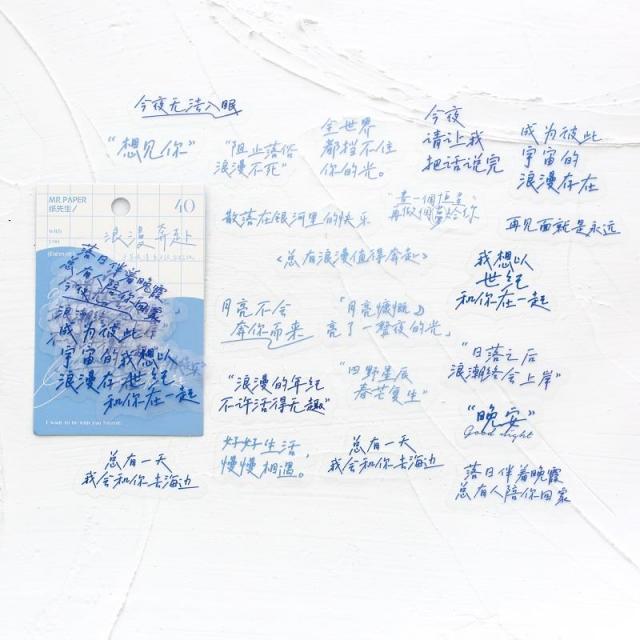 今夜无法入眠
“想见你”
“阻止落俗
浪漫不死”
全世界
都挡不住
你的光。
今夜
请让我
把话说完
成为彼此
宇宙的
浪漫存在
MR.PAPER
纸先生/
40
浪漫奔赴
散落在银河里的快乐
再见面就是永远
《总有浪漫值得奔赴》
我想以
世纪
和你在一起
落日伴着晚霞
总有人陪你回家
今夜
成为彼此
宇宙的我想以
浪漫存世纪
和你在一起
I want to be with you forever.
月亮不会
奔你而来
“月亮慷慨
亮了一整夜的光”
“日落之后
浪潮终会上岸”
“浪漫的年纪
不许活得无趣”
“田野星辰
春芒复生”
“晚安”
Good night
总有一天
我会和你去海边
好好生活，
慢慢相遇。
总有一天
我会和你去海边
落日伴着晚霞
总有人陪你回家